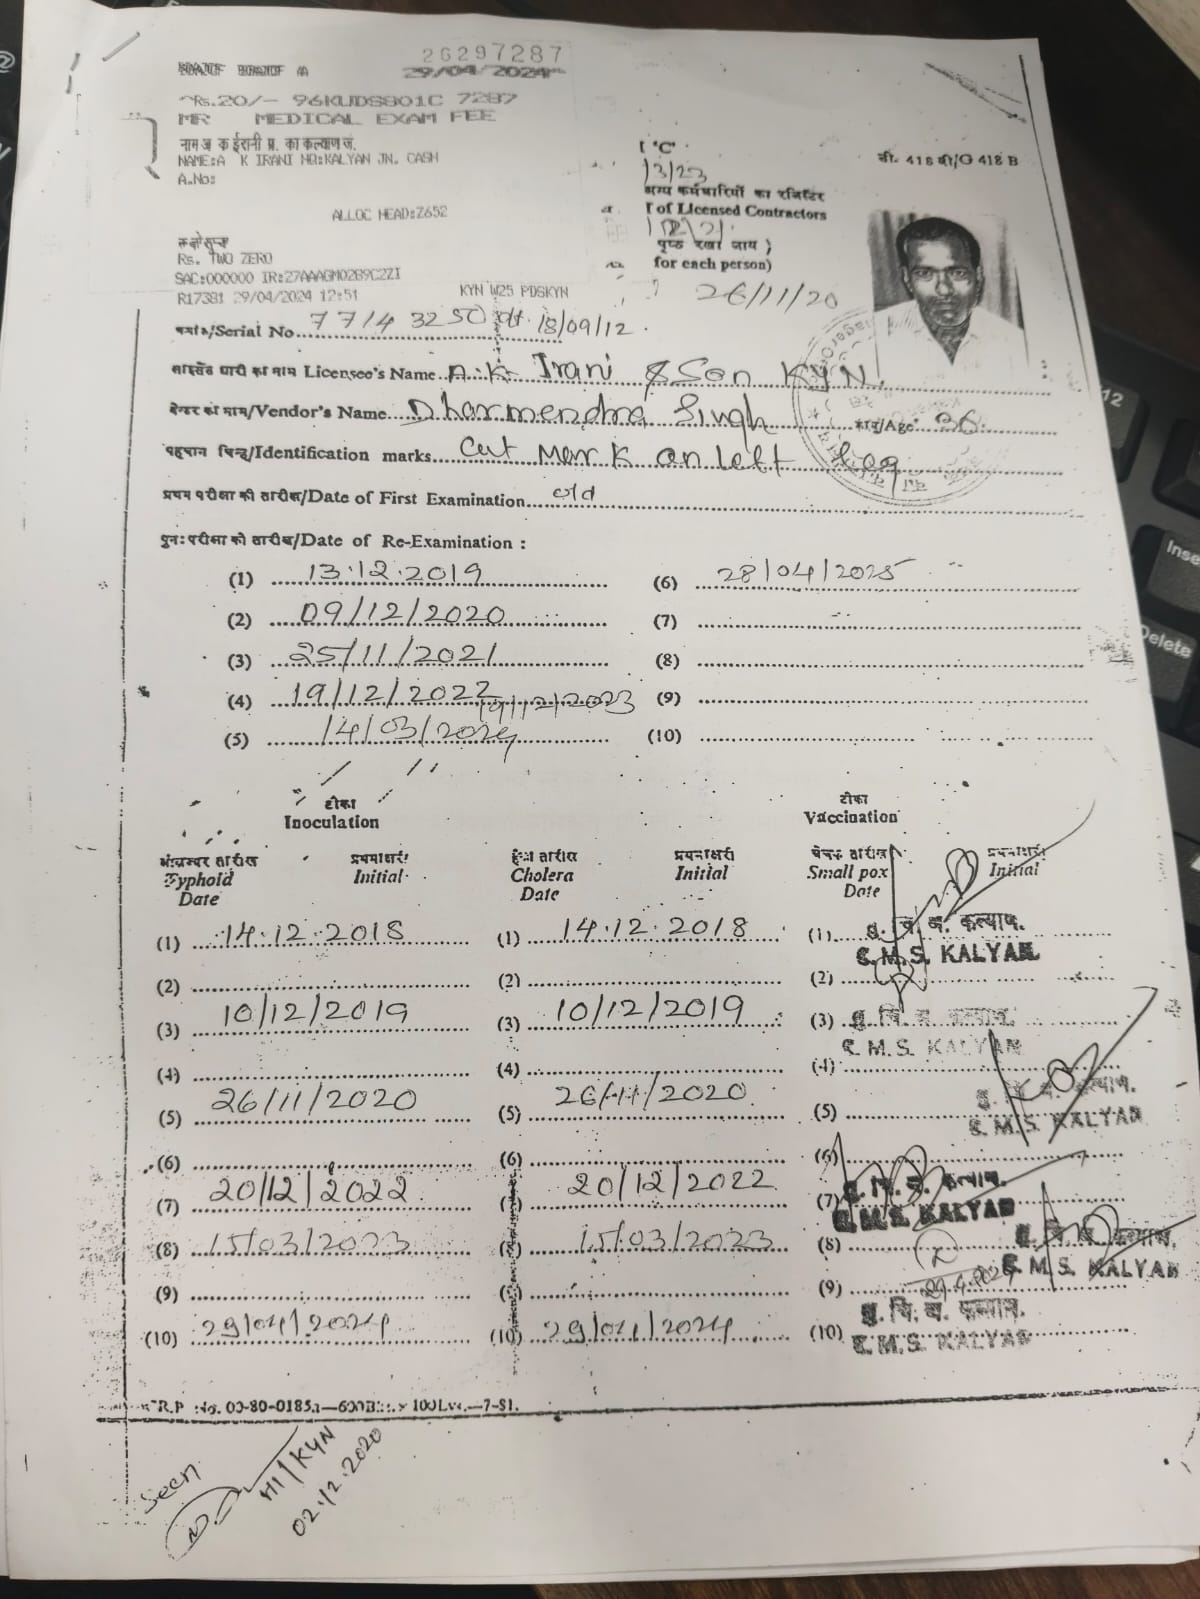 26297287
29/04/2024
Rs.20/- 96KUDS801C 7287
MR MEDICAL EXAM FEE
नाम अ क ईरानी प्र. का कल्याण जं.
NAME:A K IRANI NO:KALYAN JN. CASH
A.No:
ALLOC HEAD:Z652
Rs. TWO ZERO
SAC:000000 IR:27AAAGM0289C2ZI
R17381 29/04/2024 12:51 KYN W25 PDSKYN
'C'
जी. 418 बी/G 418 B
/3/23
अन्य कर्मचारियों का रजिस्टर
of Licensed Contractors
पृष्ठ रखा जाय )
for each person)
26/11/20
क्रमांक/Serial No. 77/4 3250 dt. 18/09/12.
लाइसेंस धारी का नाम Licensee's Name A.K. Irani & Son KYN.
वेन्डर का नाम/Vendor's Name Dharmendra Singh आयु/Age 36.
पहचान चिन्ह/Identification marks Cut Mark on left leg
प्रथम परीक्षा की तारीख/Date of First Examination old
पुनः परीक्षा की तारीख/Date of Re-Examination :
(1) 13.12.2019 (6) 28/04/2025
(2) 09/12/2020 (7)
(3) 25/11/2021 (8)
(4) 19/12/2022 19/12/2023 (9)
(5) 14/03/2024 (10)
टीका
Inoculation
टीका
Vaccination
तारीख प्रथमाक्षरी तारीख प्रथमाक्षरी चेचक तारीख प्रथमाक्षरी
Typhoid Date Initial Cholera Date Initial Small pox Date Initial
(1) 14.12.2018 (1) 14.12.2018 (1)
कल्याण.
C.M.S. KALYAN.
(2) (2) (2)
(3) 10/12/2019 (3) 10/12/2019 (3)
C.M.S. KALYAN
(4) (4) (4)
(5) 26/11/2020 (5) 26/11/2020 (5)
C.M.S. KALYAN
(6) (6) (6)
(7) 20/12/2022 20/12/2022 (7)
C.M.S. KALYAN
(8) 15/03/2023 15/03/2023 (8)
C.M.S. KALYAN
(9) (9) 29.4.2024
(10) 29/04/2024 (10) 29/04/2024 (10)
C.M.S. KALYAN
Seen
HI/KYN
02.12.2020